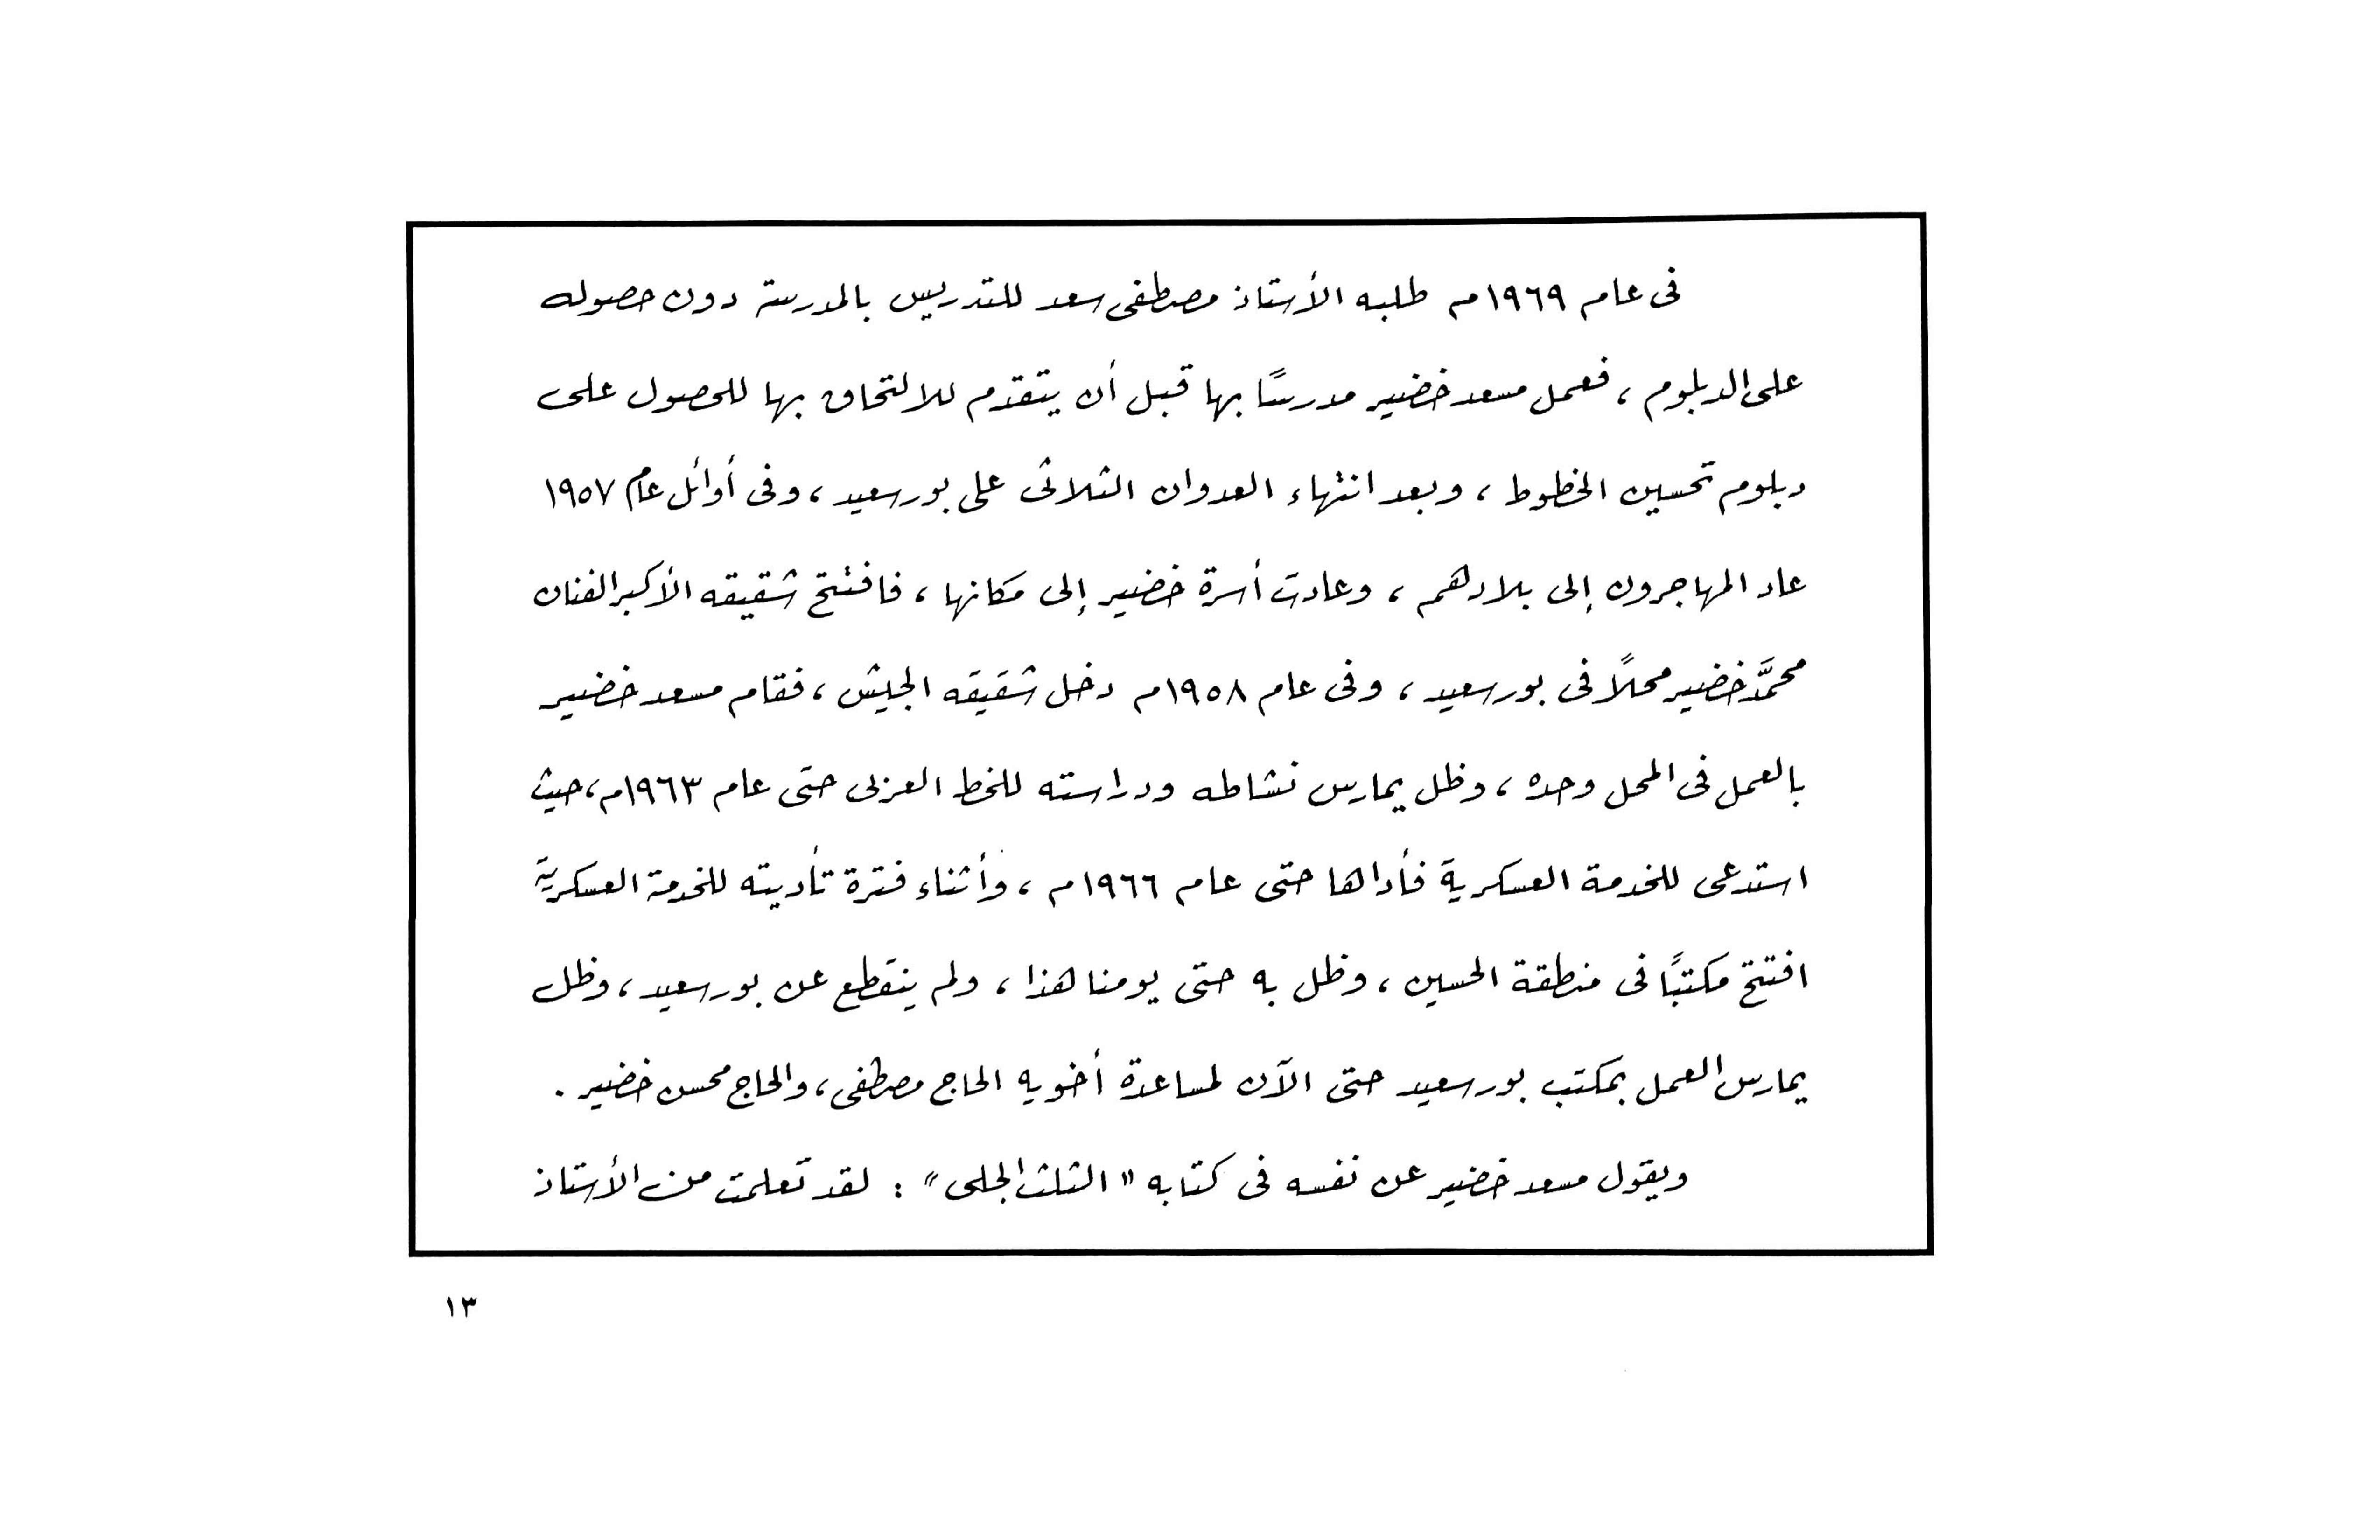 فى عام ١٩٦٩م طلبه الأستاذ مصطفى سعد للتدريس بالمدرسة دون حصوله
على الدبلوم ، فعمل مسعد خضير مدرسًا بها قبل أن يتقدم للالتحاق بها للحصول على
دبلوم تحسين الخطوط ، وبعد انتهاء العدوان الثلاثى على بورسعيد ، وفى أوائل عام ١٩٥٧
عاد المهاجرون إلى بلادهم ، وعادت أسرة خضير إلى مكانها ، فافتتح شقيقه الأكبر الفنان
محمَّد خضير محلاً فى بورسعيد ، وفى عام ١٩٥٨م دخل شقيقه الجيش ، فقام مسعد خضير
بالعمل فى المحل وحده ، وظل يمارس نشاطه ودراسته للخط العربى حتى عام ١٩٦٣م ، حيث
استدعى للخدمة العسكرية فأداها حتى عام ١٩٦٦م ، وأثناء فترة تأديته للخدمة العسكرية
افتتح مكتبًا فى منطقة الحسين ، وظل به حتى يومنا هذا ، ولم ينقطع عن بورسعيد ، وظل
يمارس العمل بمكتب بورسعيد حتى الآن لمساعدة أخويه الحاج مصطفى ، والحاج محسن خضير .
ويقول مسعد خضير عن نفسه فى كتابه " الثلث الجلى " : لقد تعلمت من الأستاذ
١٣